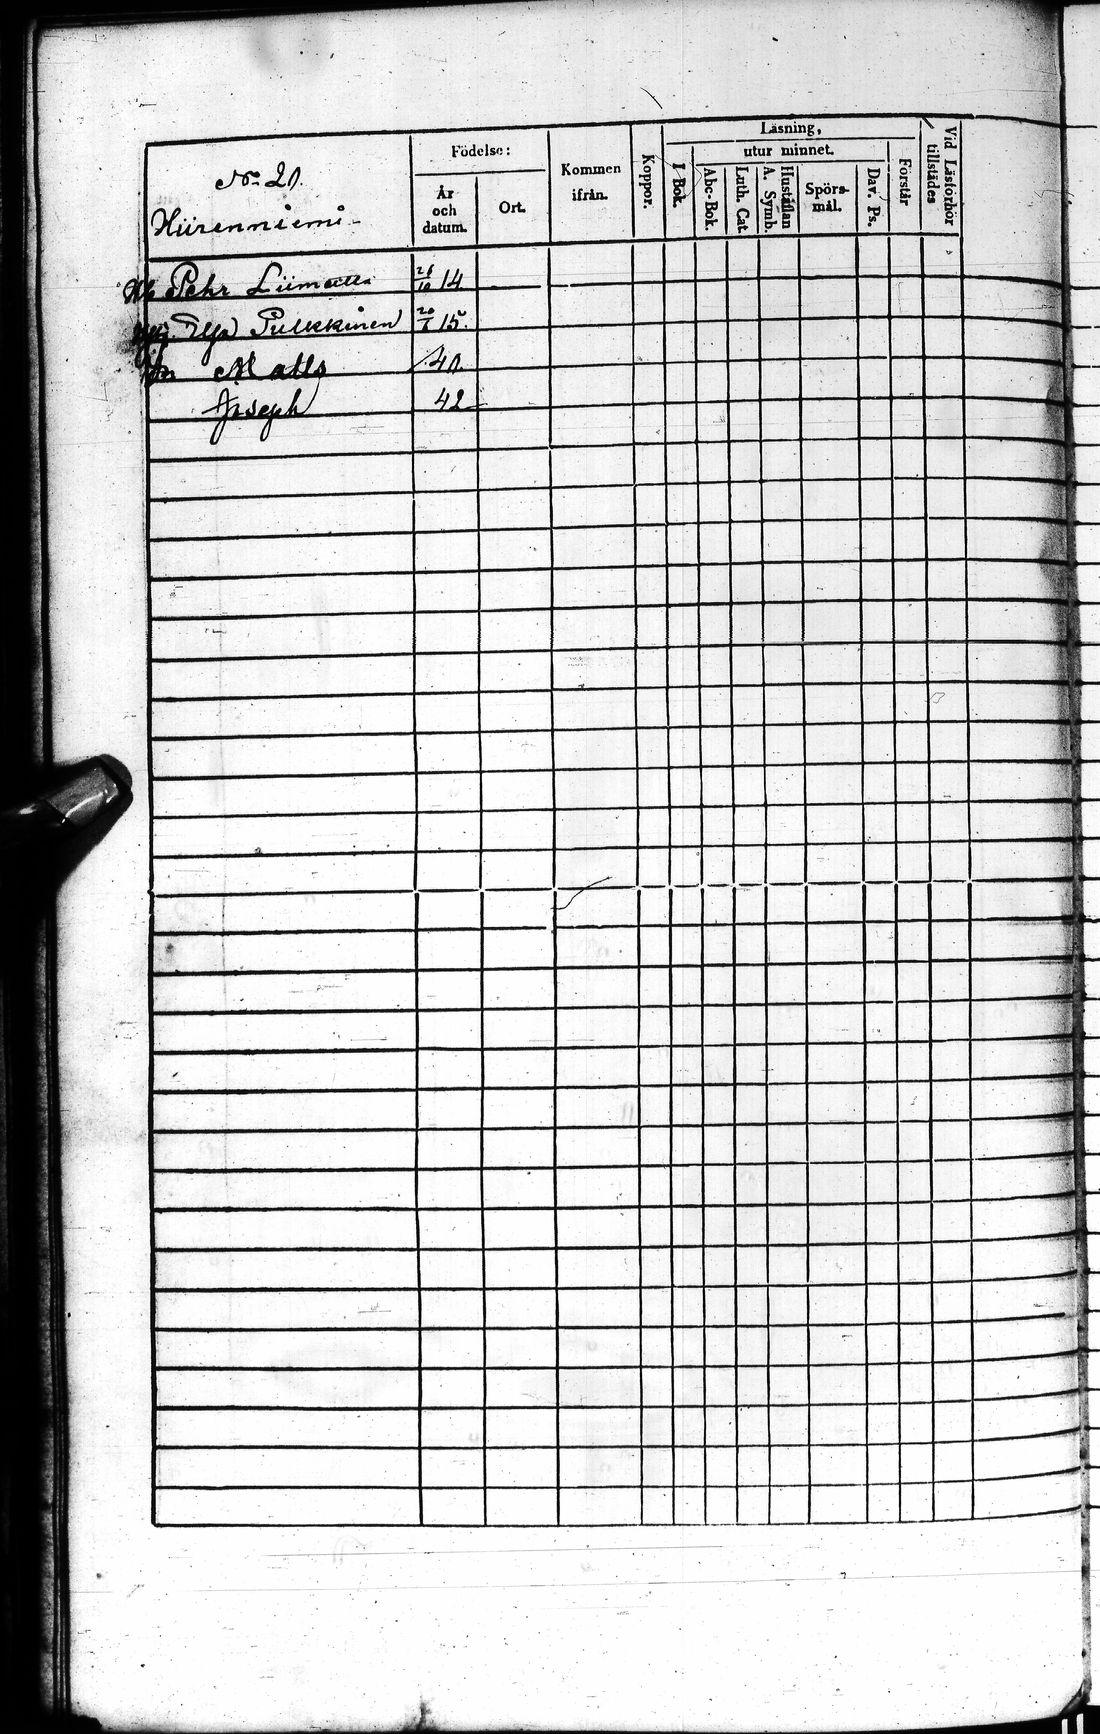 No 20.
Hiirenniemi
Födelse:
År
och
datum.
Ort.
Kommen
ifrån.
Koppor.
Läsning,
utur minnet.
I Bok.
Abc-Bok.
Luth. Cat.
A. Symb.
Hustaflan
Spörs-
mål.
Dav. Ps.
Förstår
Vid Läsförhör
tillstädes
Pehr Liimatta 26/10 14
Pulkkinen 20/1 15.
Matts 40.
Joseph 42